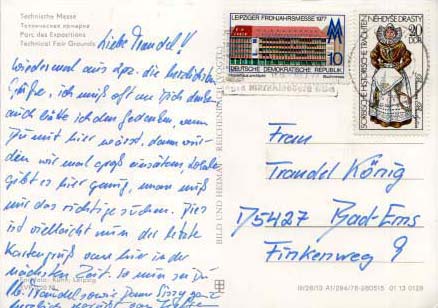 Technische Messe
Техническая ярмарка
Parc des Expositions
Technical Fair Grounds
Liebe Traudel!
Wiedermal aus Lpz. die herzlichsten
Grüße, ich muß oft an Dich denken
auch hätte ich den Gedanken, wenn
Du mit hier wärst, dann wür-
den wir mal groß einsätzen, Lokale
gibt es hier genug, man muß
nur das richtige suchen. Dies
ist vielleicht nun der letzte
Kartengruß von hier in der
nächsten Zeit. So nun sei Du
lb. Traudel sowie Deine
herzlich
Foto:
Kühn, Leipzig
BILD UND HEIMAT REICHENBACH (VOGTL)
LEIPZIGER FRÜHJAHRSMESSE 1977
10
DEUTSCHE DEMOKRATISCHE REPUBLIK
NĚHDYŠE DRASTY
20
DDR
SORBISCHE HISTORISCHE TRACHTEN
Frau
Traudel König
D5427 Bad-Ems
Finkenweg 9
III/26/13 A1/294/76 280515 01 13 0128